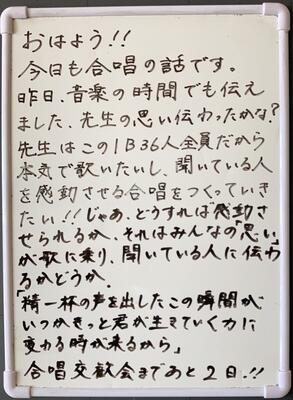 おはよう!!
今日も合唱の話です。
昨日、音楽の時間でも伝え
ました、先生の思い伝わったかな?
先生はこの1B36人全員だから
本気で歌いたいし、聞いている人
を感動させる合唱をつくっていき
たい!!じゃあ、どうすれば感動さ
せられるか、それはみんなの「思い」
が歌に乗り、聞いている人に伝わ
るかどうか。
「精一杯の声を出したこの瞬間が
いつかきっと君が生きていく力に
変わる時が来るから」
合唱交歓会まであと2日!!